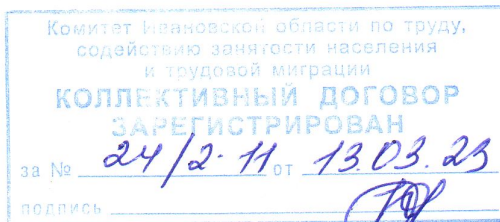 Комитет Ивановской области по труду,
содействию занятости населения
и трудовой миграции
КОЛЛЕКТИВНЫЙ ДОГОВОР
ЗАРЕГИСТРИРОВАН
за № 24/2-11 от 13.03.23
подпись